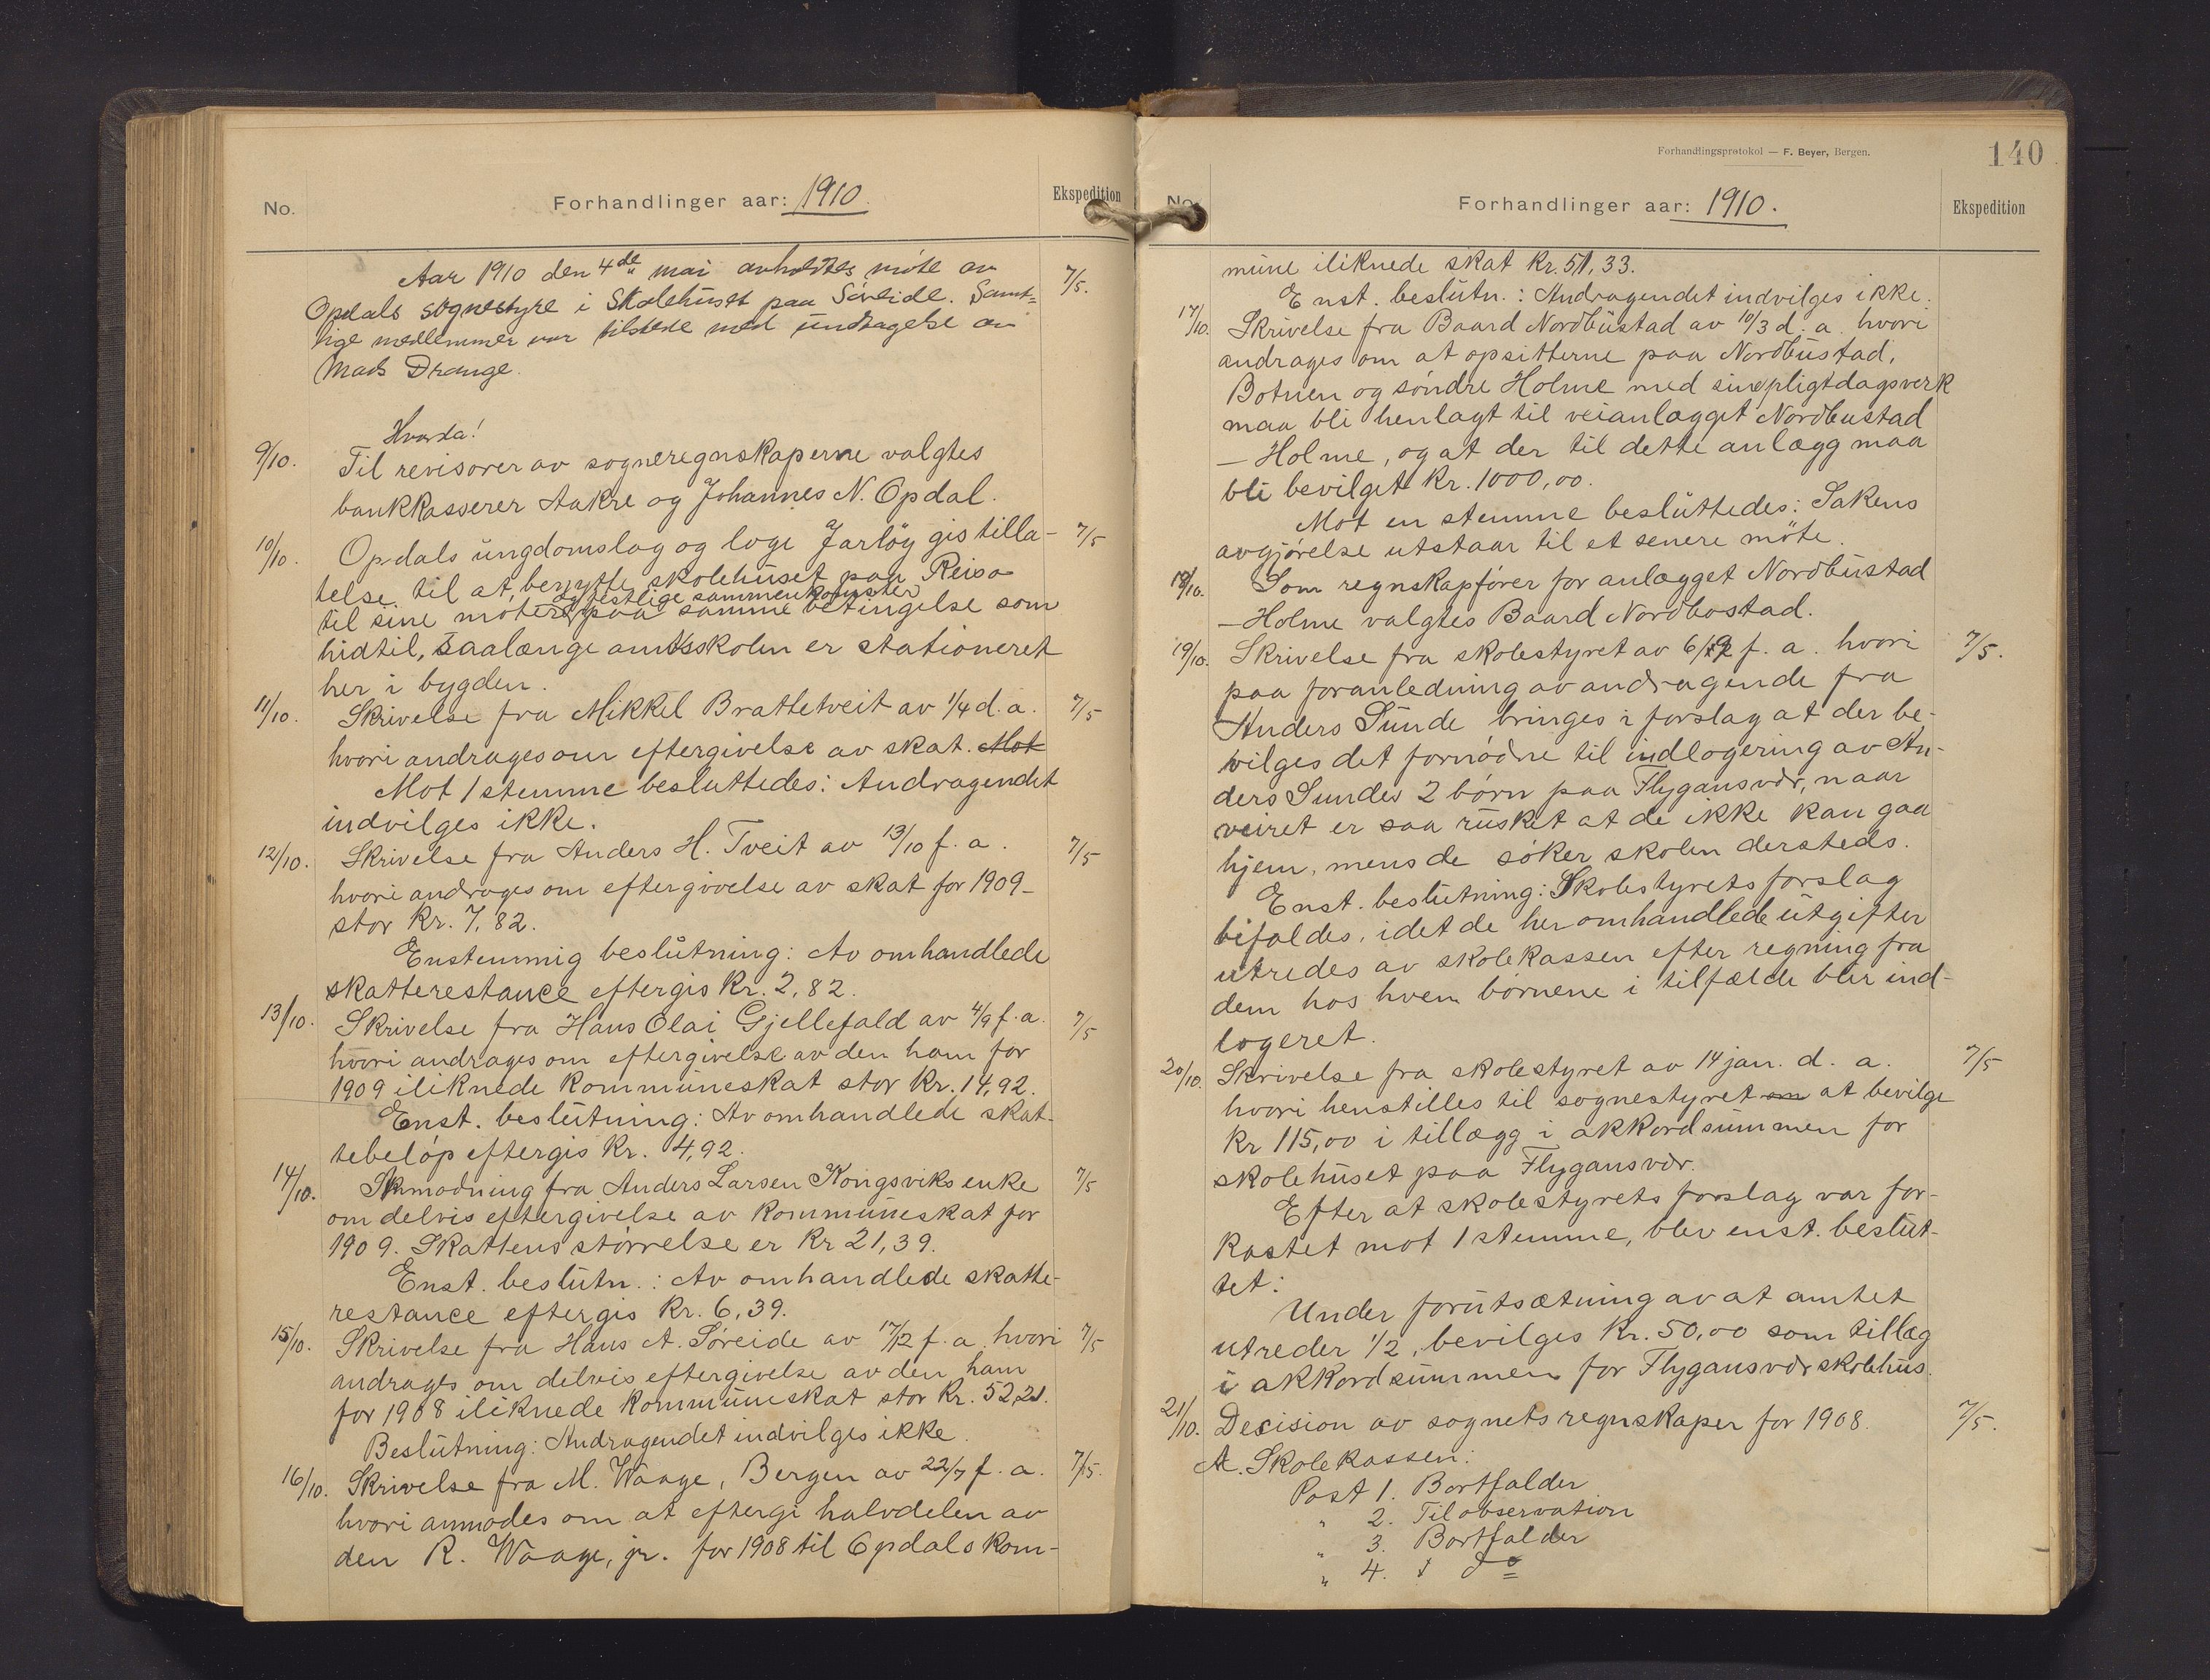 No.
Forhandlinger aar: 1910.
Ekspedition
Aar 1910 den 4de mai avholdtes møte av
7/5.
Opdals sognestyre i Skolehuset paa Søreide. Samt-
lige medlemmer var tilstede med undtagelse av
Mads Drange.
Hvorda!
9/10. Til revisorer av sogneregnskaperne valgtes
bankkasserer Aakre og Johannes N. Opdal.
10/10. Opdals ungdomslag og loge Jarløy gis tilla-
7/5
telse til at benytte skolehuset paa Reisa
og festlige sammenkomster
til sine møter paa samme betingelse som
hidtil, saalænge amtsskolen er stationeret
her i bygden.
11/10. Skrivelse fra Mikkel Brattetveit av 1/4 d. a.
7/5
hvori andrages om eftergivelse av skat. Mot
Mot 1 stemme besluttedes: Andragendet
indvilges ikke.
12/10. Skrivelse fra Anders H. Tveit av 13/10 f. a.
7/5
hvori andrages om eftergivelse av skat for 1909-
stor kr. 7,82.
Enstemmig beslutning: Av omhandlede
skatterestance eftergis kr. 2,82.
13/10. Skrivelse fra Hans Olai Gjellefald av 4/9 f. a.
7/5
hvori andrages om eftergivelse av den ham for
1909 iliknede kommuneskat stor kr. 14,92.
Enst. beslutning: Av omhandlede skat-
tebeløp eftergis kr. 4,92.
14/10. Anmodning fra Anders Larsen Kongsviks enke
7/5
om delvis eftergivelse av kommuneskat for
1909. Skattens størrelse er kr 21,39.
Enst. beslutn.: Av omhandlede skatte-
restance eftergis kr. 6,39.
15/10. Skrivelse fra Hans A. Søreide av 17/12 f. a. hvori
7/5
andrages om delvis eftergivelse av den ham
for 1908 iliknede kommuneskat stor kr. 52,21.
Beslutning: Andragendet indvilges ikke.
16/10. Skrivelse fra M. Waage, Bergen av 22/7 f. a.
7/5.
hvori anmodes om at eftergi halvdelen av
den R. Waage, jr. for 1908 til Opdals kom-
Forhandlingsprotokol — F. Beyer, Bergen.
140
No.
Forhandlinger aar: 1910.
Ekspedition
mune iliknede skat kr. 51,33.
Enst. beslutn.: Andragendet indvilges ikke.
17/10. Skrivelse fra Baard Nordbustad av 10/3 d. a. hvori
andrages om at opsitterne paa Nordbustad,
Botnen og søndre Holme med sine pligtdagsverk
maa bli henlagt til veianlægget Nordbustad
— Holme, og at der til dette anlægg maa
bli bevilget kr. 1000,00.
Mot en stemme besluttedes: Sakens
avgjørelse utstaar til et senere møte.
18/10. Som regnskapfører for anlægget Nordbustad
— Holme valgtes Baard Nordbostad.
19/10. Skrivelse fra skolestyret av 6/12 f. a. hvori
7/5.
paa foranledning av andragende fra
Anders Sunde bringes i forslag at der be-
vilges det fornødne til indlogering av An-
ders Sundes 2 børn paa Flygansvær, naar
veiret er saa rusket at de ikke kan gaa
hjem, mens de søker skolen dersteds.
Enst. beslutning: Skolestyrets forslag
bifaldes, idet de her omhandlede utgifter
utredes av skolekassen efter regning fra
dem hos hvem børnene i tilfælde blir ind-
logeret.
20/10. Skrivelse fra skolestyret av 14 jan. d. a.
7/5
hvori henstilles til sognestyret om at bevilge
kr 115,00 i tillægg i akkordsummen for
skolehuset paa Flygansvær.
Efter at skolestyrets forslag var for-
kastet mot 1 stemme, blev enst. beslut-
tet:
Under forutsætning av at amtet
utreder 1/2, bevilges kr. 50,00 som tillæg
i akkordsummen for Flygansvær skolehus.
21/10. Decision av sognets regnskaper for 1908.
7/5.
A. Skolekassen:
Post 1. Bortfalder
" 2. Til observation
" 3. Bortfalder
" 4. do